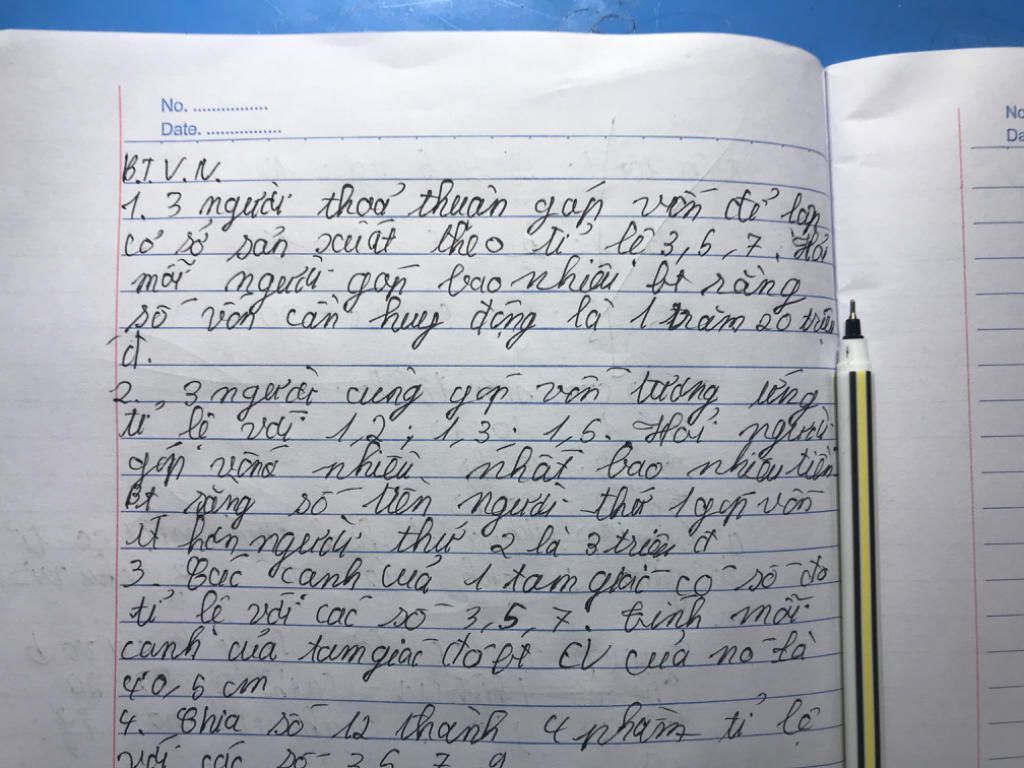 No. ................
Date. ................
B.T.V.N.
1. 3 người thoả thuận góp vốn để lập
cơ sở sản xuất theo tỉ lệ 3, 5, 7. Hỏi
mỗi người góp bao nhiêu bt rằng
số vốn cần huy động là 1 trăm 20 triệu
đ.
2. 3 người cùng góp vốn tương ứng
tỉ lệ với 1,2 ; 1,3 ; 1,5. Hỏi người
góp vốn nhiều nhất bao nhiêu tiền
Bt rằng số tiền người thứ 1 góp vốn
ít hơn người thứ 2 là 3 triệu đ
3. Các cạnh của 1 tam giác có số đo
tỉ lệ với các số 3, 5, 7. tính mỗi
cạnh của tam giác đó bt CV của nó là
40,5 cm
4. Chia số 12 thành 4 phần tỉ lệ
với các số 3, 5, 7, 9
No
Da